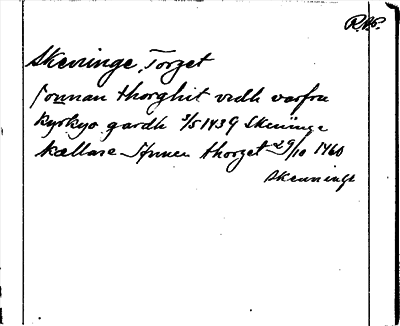 R.A.P.
Skeninge, Torget
sonnan thorghit vidh varfru
kyrkyo gardh 3/5 1439 Skeninge
kællare sunnen thorget 29/10 1460
Skenninge